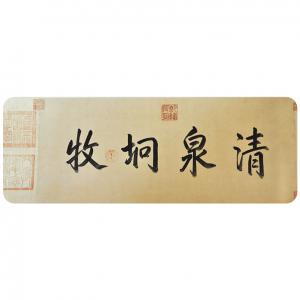 清泉坰牧